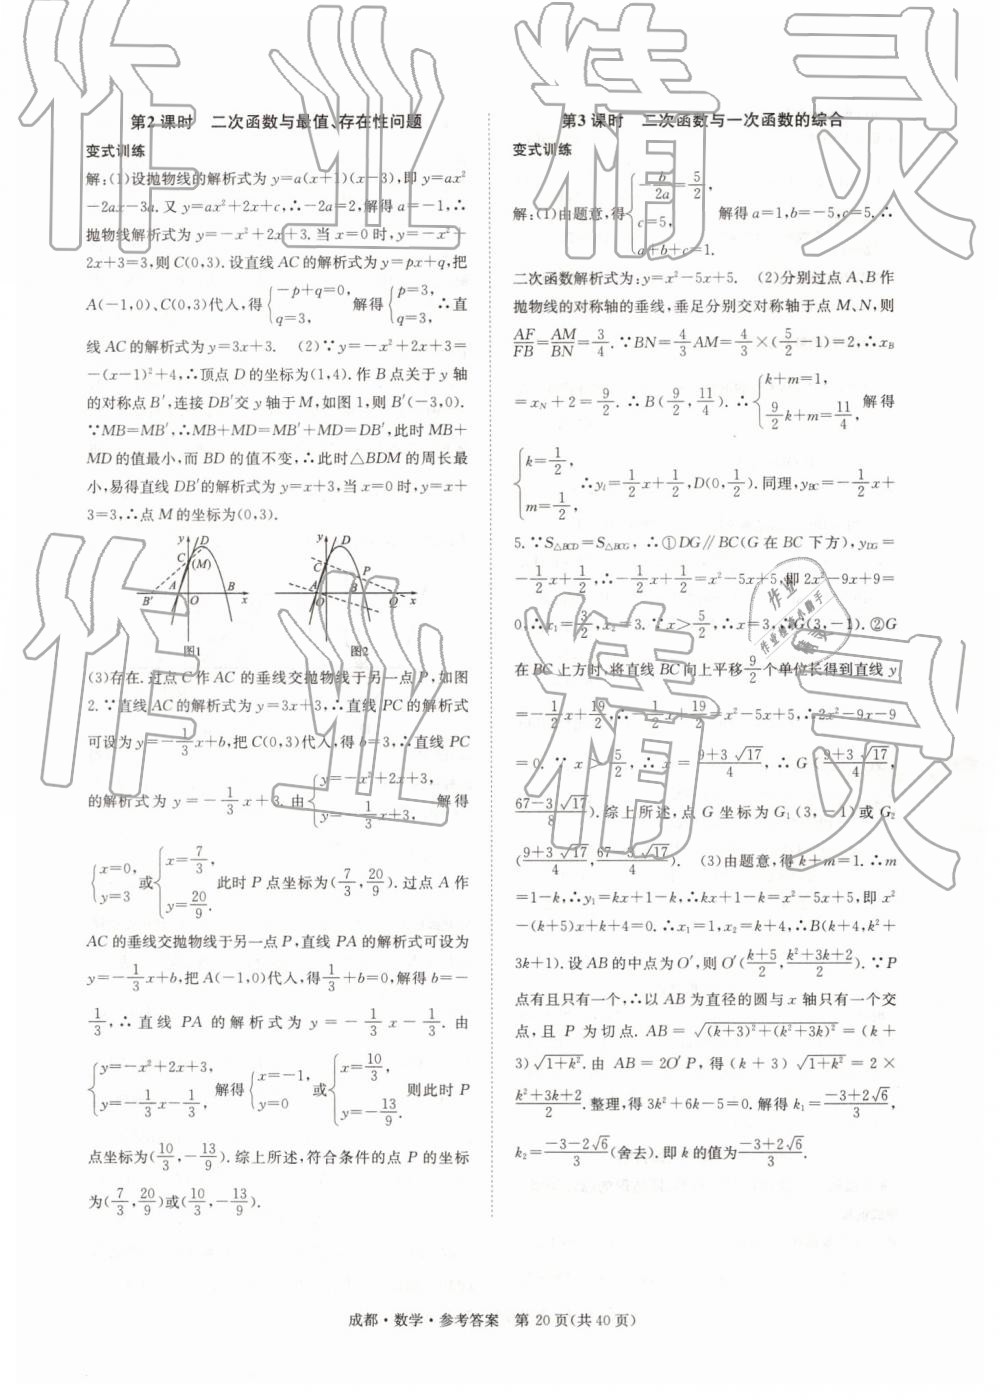 第2课时 二次函数与最值、存在性问题
变式训练
解:(1)设抛物线的解析式为 y=a(x+1)(x-3),即 y=ax²
-2ax-3a. 又 y=ax²+2x+c,∴-2a=2,解得 a=-1,∴
抛物线解析式为 y=-x²+2x+3. 当 x=0 时,y=-x²+
2x+3=3,则 C(0,3). 设直线 AC 的解析式为 y=px+q,把
A(-1,0)、C(0,3)代入,得{-p+q=0, q=3, 解得{p=3, q=3, ∴直
线 AC 的解析式为 y=3x+3. (2)∵y=-x²+2x+3=
-(x-1)²+4,∴顶点 D 的坐标为(1,4). 作 B 点关于 y 轴
的对称点 B′,连接 DB′交 y 轴于 M,如图 1,则 B′(-3,0).
∵MB=MB′,∴MB+MD=MB′+MD=DB′,此时 MB+
MD 的值最小,而 BD 的值不变,∴此时△BDM 的周长最
小,易得直线 DB′的解析式为 y=x+3,当 x=0 时,y=x+
3=3,∴点 M 的坐标为(0,3).
y D C (M) A B B′ O x
图1
y D C P A B O Q x
图2
(3)存在. 过点 C 作 AC 的垂线交抛物线于另一点 P,如图
2. ∵直线 AC 的解析式为 y=3x+3,∴直线 PC 的解析式
可设为 y=-1/3x+b,把 C(0,3)代入,得 b=3,∴直线 PC
的解析式为 y=-1/3x+3. 由{y=-x²+2x+3, y=-1/3x+3, 解得
{x=0, y=3 或{x=7/3, y=20/9. 此时 P 点坐标为(7/3,20/9). 过点 A 作
AC 的垂线交抛物线于另一点 P,直线 PA 的解析式可设为
y=-1/3x+b,把 A(-1,0)代入,得1/3+b=0,解得 b=-
1/3,∴直线 PA 的解析式为 y=-1/3x-1/3. 由
{y=-x²+2x+3, y=-1/3x-1/3, 解得{x=-1, y=0 或{x=10/3, y=-13/9. 则此时 P
点坐标为(10/3,-13/9). 综上所述,符合条件的点 P 的坐标
为(7/3,20/9)或(10/3,-13/9).
第3课时 二次函数与一次函数的综合
变式训练
解:(1)由题意,得{-b/2a=5/2, c=5, a+b+c=1. 解得 a=1,b=-5,c=5. ∴
二次函数解析式为:y=x²-5x+5. (2)分别过点 A、B 作
抛物线的对称轴的垂线,垂足分别交对称轴于点 M、N,则
AF/FB=AM/BN=3/4. ∵BN=4/3AM=4/3×(5/2-1)=2,∴x_B
=x_N+2=9/2. ∴B(9/2,11/4). ∴{k+m=1, 9/2k+m=11/4, 解得
{k=1/2, m=1/2, ∴y₁=1/2x+1/2,D(0,1/2). 同理,y_BC=-1/2x+
5. ∵S△BCD=S△BCG,∴①DG∥BC(G 在 BC 下方),y_DG=
-1/2x+1/2,∴-1/2x+1/2=x²-5x+5,即 2x²-9x+9=
0. ∴x₁=3/2,x₂=3. ∵x>5/2,∴x=3,∴G(3,-1). ②G
在 BC 上方时,将直线 BC 向上平移9/2个单位长得到直线 y
=-1/2x+19/2,∴-1/2x+19/2=x²-5x+5,∴2x²-9x-9
=0. ∵x>5/2,∴x=9+3√17/4,∴G(9+3√17/4,
67-3√17/8). 综上所述,点 G 坐标为 G₁(3,-1)或 G₂
(9+3√17/4,67-3√17/4). (3)由题意,得 k+m=1. ∴m
=1-k,∴y₁=kx+1-k,∴kx+1-k=x²-5x+5,即 x²
-(k+5)x+k+4=0. ∴x₁=1,x₂=k+4,∴B(k+4,k²+
3k+1). 设 AB 的中点为 O′,则 O′(k+5/2,k²+3k+2/2). ∵P
点有且只有一个,∴以 AB 为直径的圆与 x 轴只有一个交
点,且 P 为切点. AB=√(k+3)²+(k²+3k)²=(k+
3)√1+k². 由 AB=2O′P,得(k+3)√1+k²=2×
k²+3k+2/2. 整理,得 3k²+6k-5=0. 解得 k₁=-3+2√6/3,
k₂=-3-2√6/3(舍去). 即 k 的值为-3+2√6/3.
成都·数学·参考答案 第 20 页(共 40 页)
作业精灵
作业精灵
作业
作业检查小助手
精灵